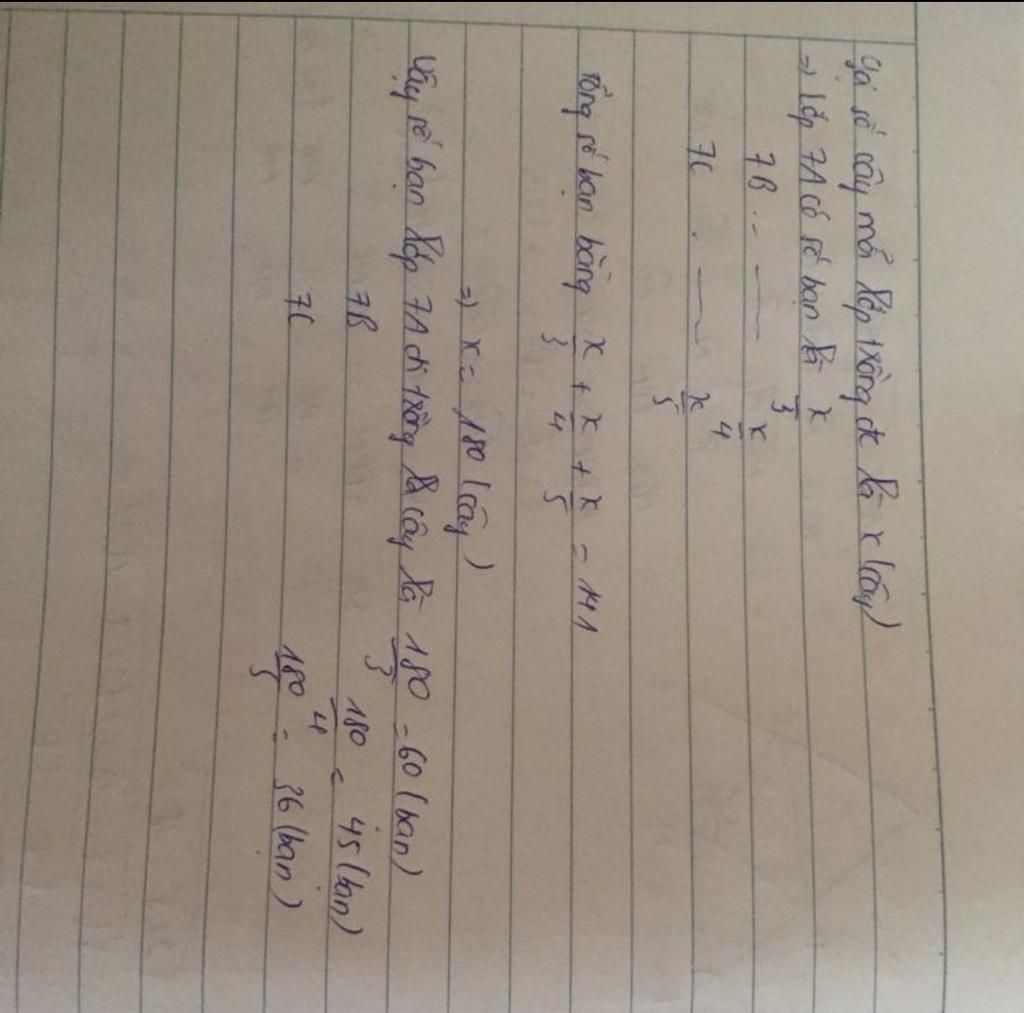 Gọi số cây mỗi lớp trồng đc là x (cây)
=> lớp 7A có số bạn là x/3
7B .. — — x/4
7C . — — x/5
Tổng số bạn bằng x/3 + x/4 + x/5 = 141
=> x = 180 (cây)
Vậy số bạn lớp 7A đi trồng cây là 180/3 = 60 (bạn)
7B 180/4 = 45 (bạn)
7C 180/5 = 36 (bạn)